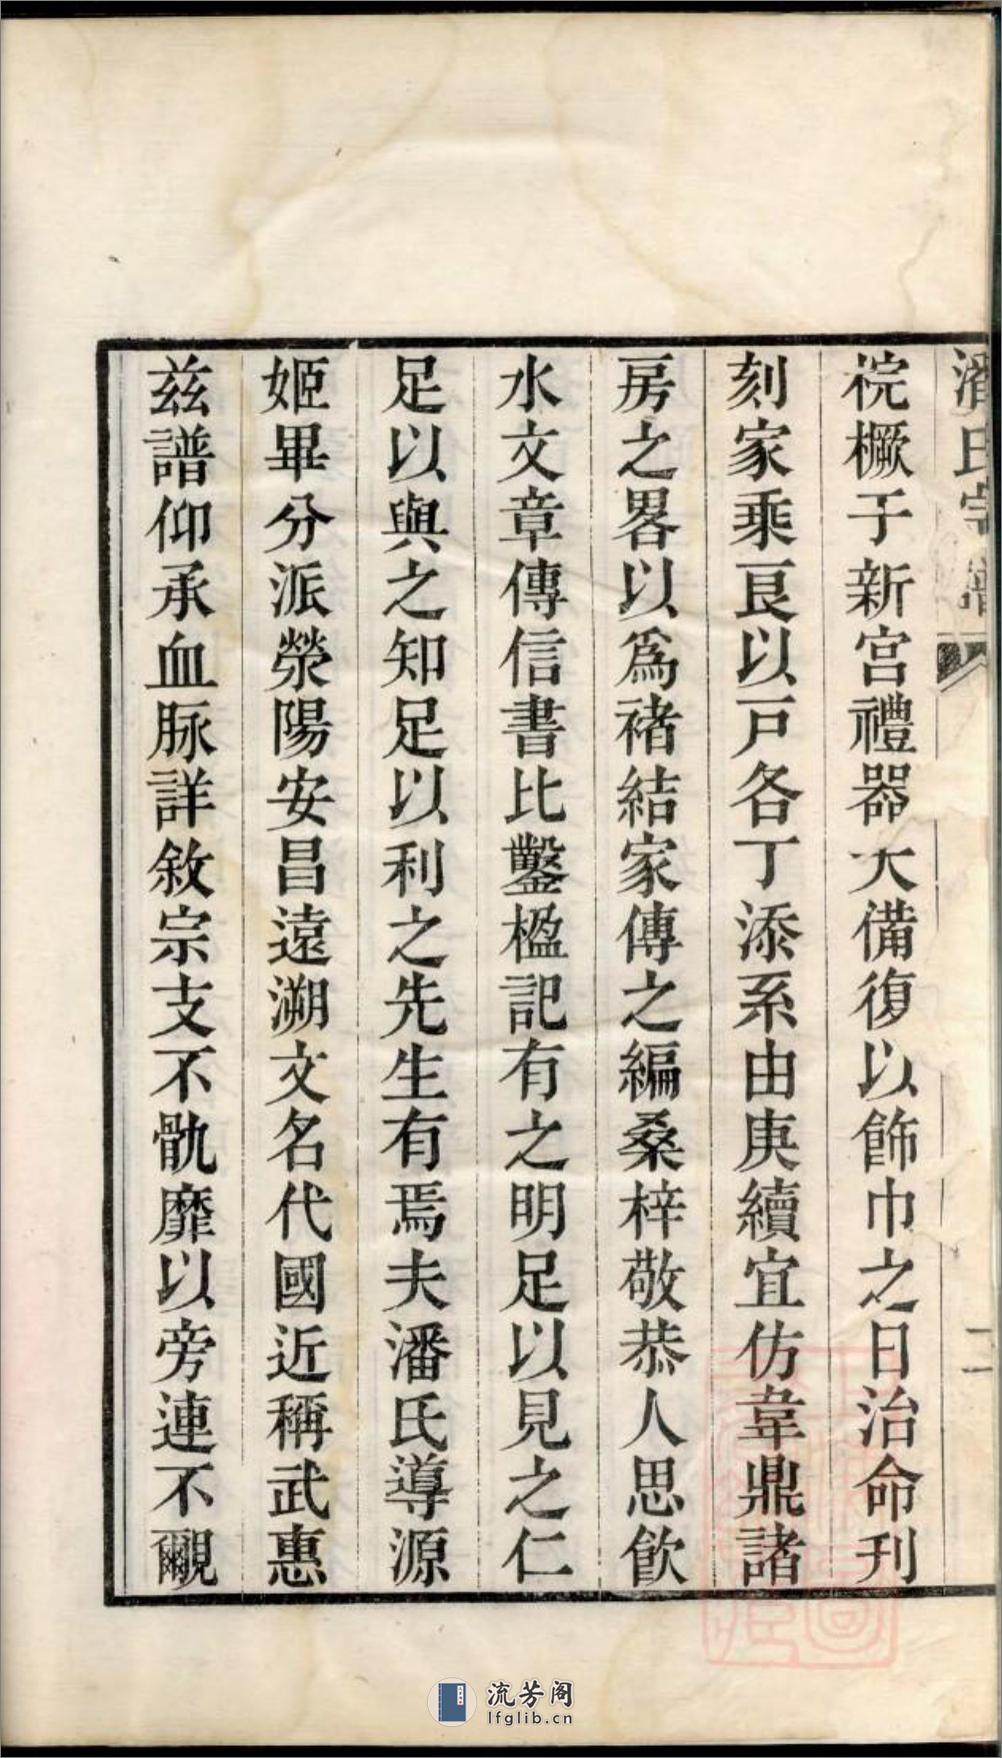 潘氏宗譜
二
梡橛于新宮禮器大備復以飾巾之日治命刋
刻家乘艮以戸各丁添系由庚續宜仿韋鼎諸
房之畧以爲禇結家傳之編桑梓敬恭人思飮
水文章傳信書比鑿楹記有之明足以見之仁
足以與之知足以利之先生有焉夫潘氏導源
姬畢分派滎陽安昌遠溯文名代國近稱武惠
兹譜仰承血脉詳敘宗支不骫靡以旁連不覼
流芳阁
lfglib.cn